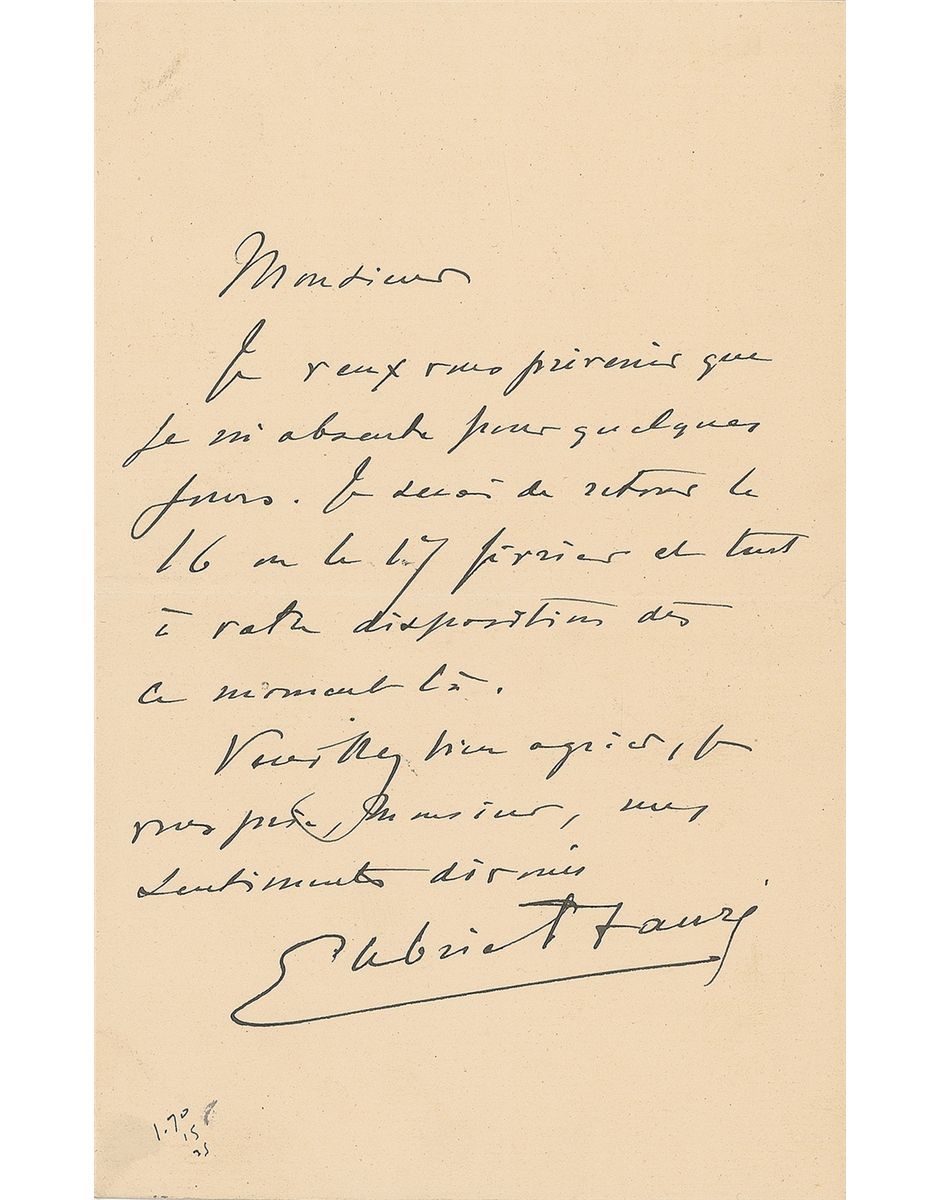 Monsieur
Je veux vous prévenir que
je m'absente pour quelques
jours. Je serai de retour le
16 ou le 17 février et tout
à votre disposition dès
ce moment là.
Veuillez bien agréer, je
vous prie, Monsieur, mes
sentiments dévoués
Gabriel Fauré
1.70
15
25